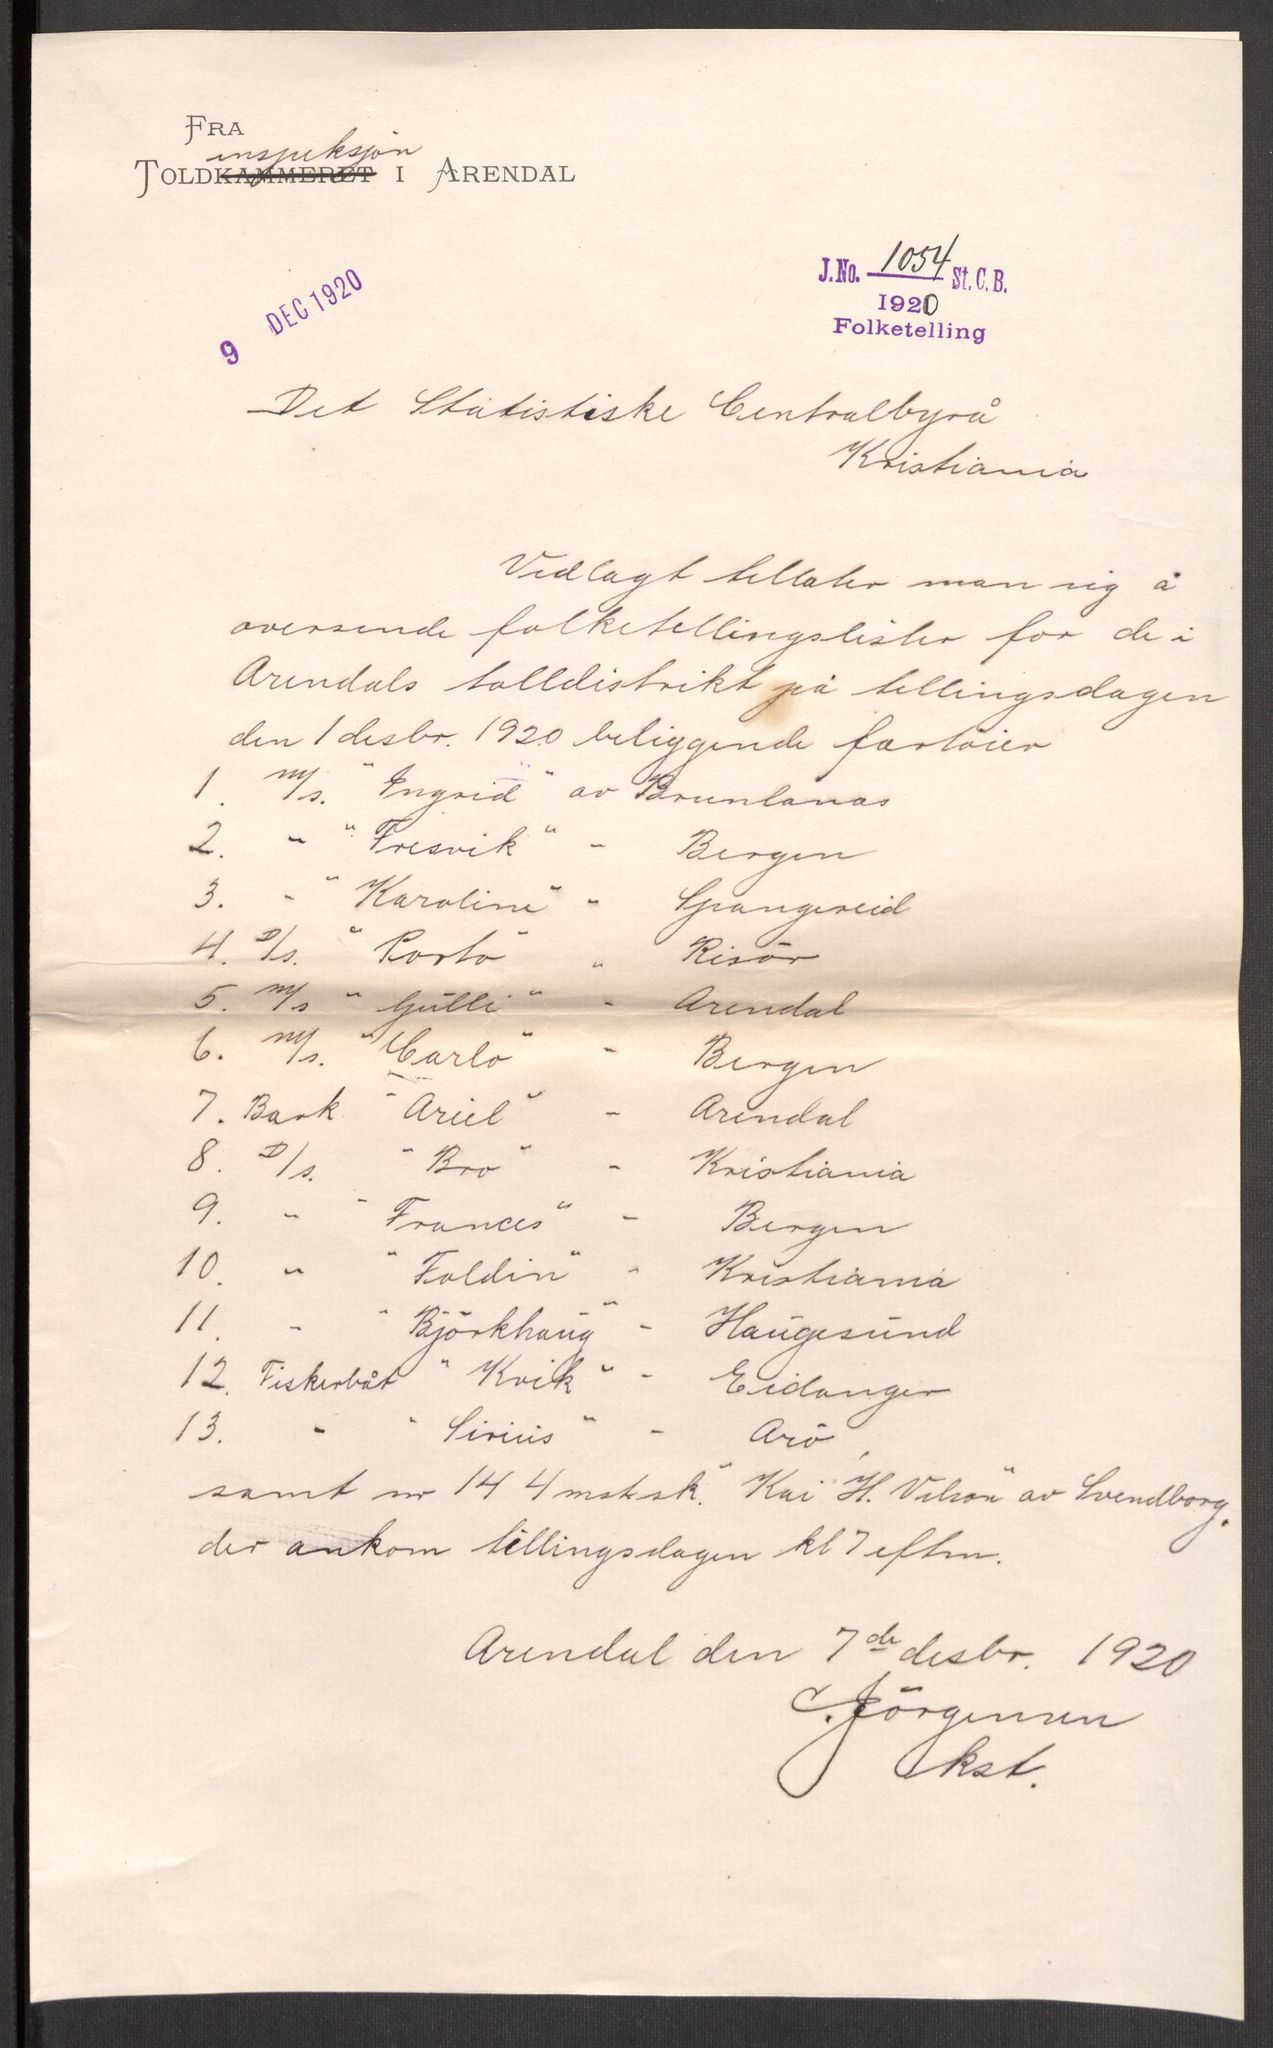 FRA
inspeksjon
TOLDKAMMERET I ARENDAL
J.No. 1054 St.C.B.
1920
Folketelling
9 DEC 1920
Det Statistiske Centralbyrå
Kristiania
Vedlagt tillater man sig å
oversende folketellingslister for de i
Arendals tolldistrikt på tellingsdagen
den 1 desbr. 1920 beliggende fartöier
1. M/s. "Ingrid" av Brunlanas
2. " "Fresvik" - Bergen
3. " "Karoline" " Spangereid
4. D/s. "Portö" " Risör
5. M/s "Gulli" - Arendal
6. M/s. "Carlo" - Bergen
7. Bark "Ariel" - Arendal
8. D/s. "Bro" - Kristiania
9. " "Frances" - Bergen
10. " "Foldin" " Kristiania
11. " "Björkhaug" - Haugesund
12. Fiskerbåt "Kvik" - Eidanger
13. " "Sirius" - Arö,
samt nr 14 4 mstsk. "Kai H. Vilsön" av Svendborg.
der ankom tellingsdagen kl 7 eftm.
Arendal den 7de desbr. 1920
C. Jörgensen
kst.